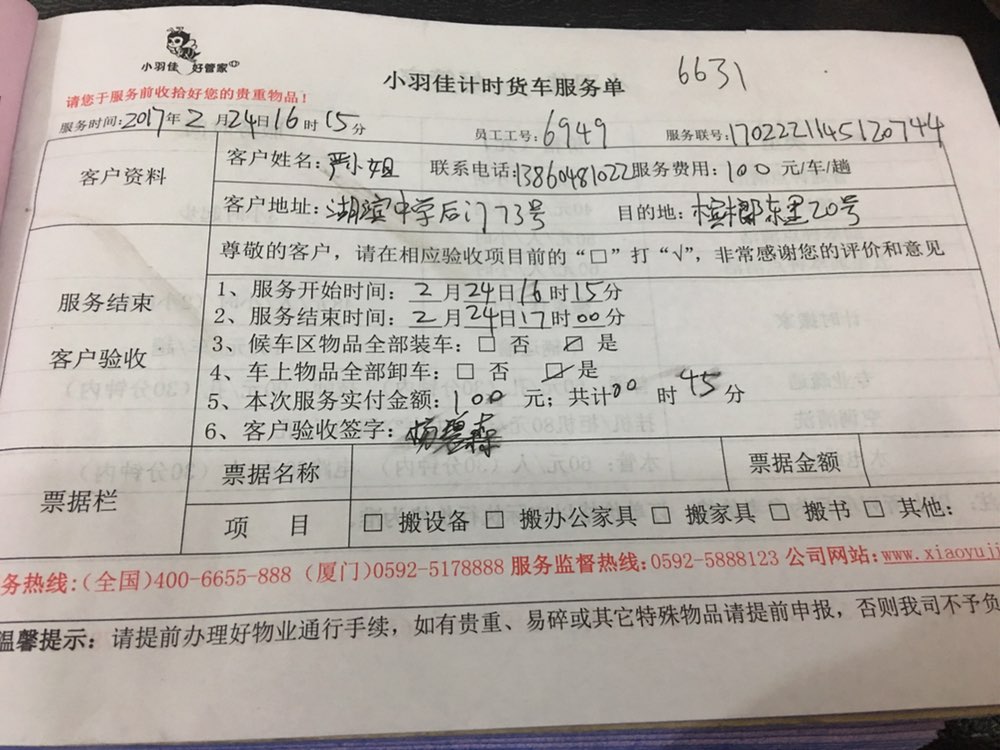 小羽佳 好管家
小羽佳计时货车服务单 6631
请您于服务前收拾好您的贵重物品！
服务时间:2017年2月24日16时15分 员工工号:6949 服务联号:1702221145120744
客户资料
客户姓名:严小姐 联系电话:13860481022服务费用:100元/车/趟
客户地址:湖滨中学后门73号 目的地:槟榔东里20号
服务结束
客户验收
尊敬的客户，请在相应验收项目前的“□”打“√”，非常感谢您的评价和意见
1、服务开始时间:2月24日16时15分
2、服务结束时间:2月24日17时00分
3、候车区物品全部装车:□ 否 ☑ 是
4、车上物品全部卸车:□ 否 ☑ 是
5、本次服务实付金额:100元；共计00时45分
6、客户验收签字:杨碧森
票据栏
票据名称 票据金额
项 目 □ 搬设备 □ 搬办公家具 □ 搬家具 □ 搬书 □ 其他:
务热线:(全国)400-6655-888 (厦门)0592-5178888 服务监督热线:0592-5888123 公司网站:www.xiaoyujj
温馨提示: 请提前办理好物业通行手续，如有贵重、易碎或其它特殊物品请提前申报，否则我司不予负